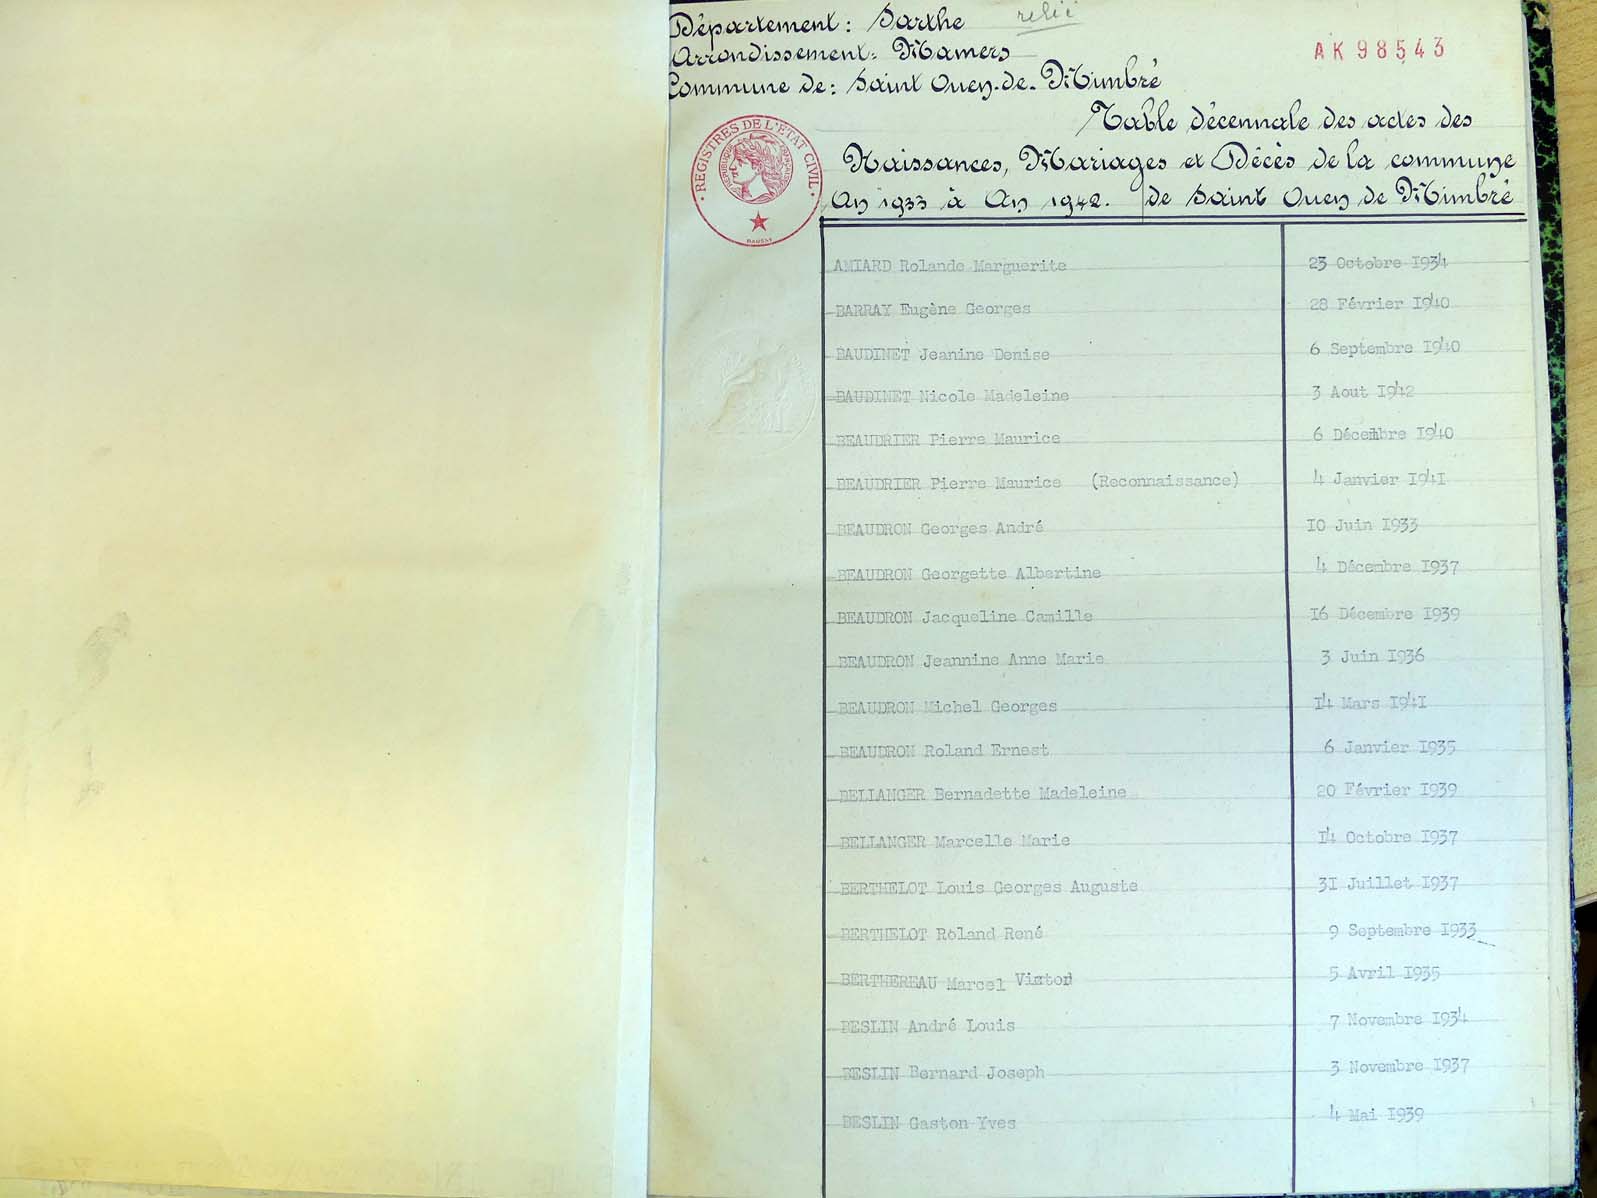 Département: Sarthe relié
AK98543
Arrondissement: Mamers
Commune de: Saint Ouen-de-Mimbré
Table décennale des actes des
Naissances, Mariages et Décès de la commune
An 1933 à An 1942. de Saint Ouen de Mimbré
REGISTRES DE L'ETAT CIVIL
AMIARD Rolande Marguerite 23 Octobre 1934
BARRAY Eugène Georges 28 Février 1940
BAUDINET Jeanine Denise 6 Septembre 1940
BAUDINET Nicole Madeleine 3 Aout 1942
BEAUDRIER Pierre Maurice 6 Décembre 1940
BEAUDRIER Pierre Maurice (Reconnaissance) 4 Janvier 1941
BEAUDRON Georges André 10 Juin 1933
BEAUDRON Georgette Albertine 4 Décembre 1937
BEAUDRON Jacqueline Camille 16 Décembre 1939
BEAUDRON Jeannine Anne Marie 3 Juin 1936
BEAUDRON Michel Georges 14 Mars 1941
BEAUDRON Roland Ernest 6 Janvier 1935
BELLANGER Bernadette Madeleine 20 Février 1939
BELLANGER Marcelle Marie 14 Octobre 1937
BERTHELOT Louis Georges Auguste 31 Juillet 1937
BERTHELOT Roland René 9 Septembre 1933
BERTHEREAU Marcel Victor 5 Avril 1935
BESLIN André Louis 7 Novembre 1934
BESLIN Bernard Joseph 3 Novembre 1937
BESLIN Gaston Yves 4 Mai 1939